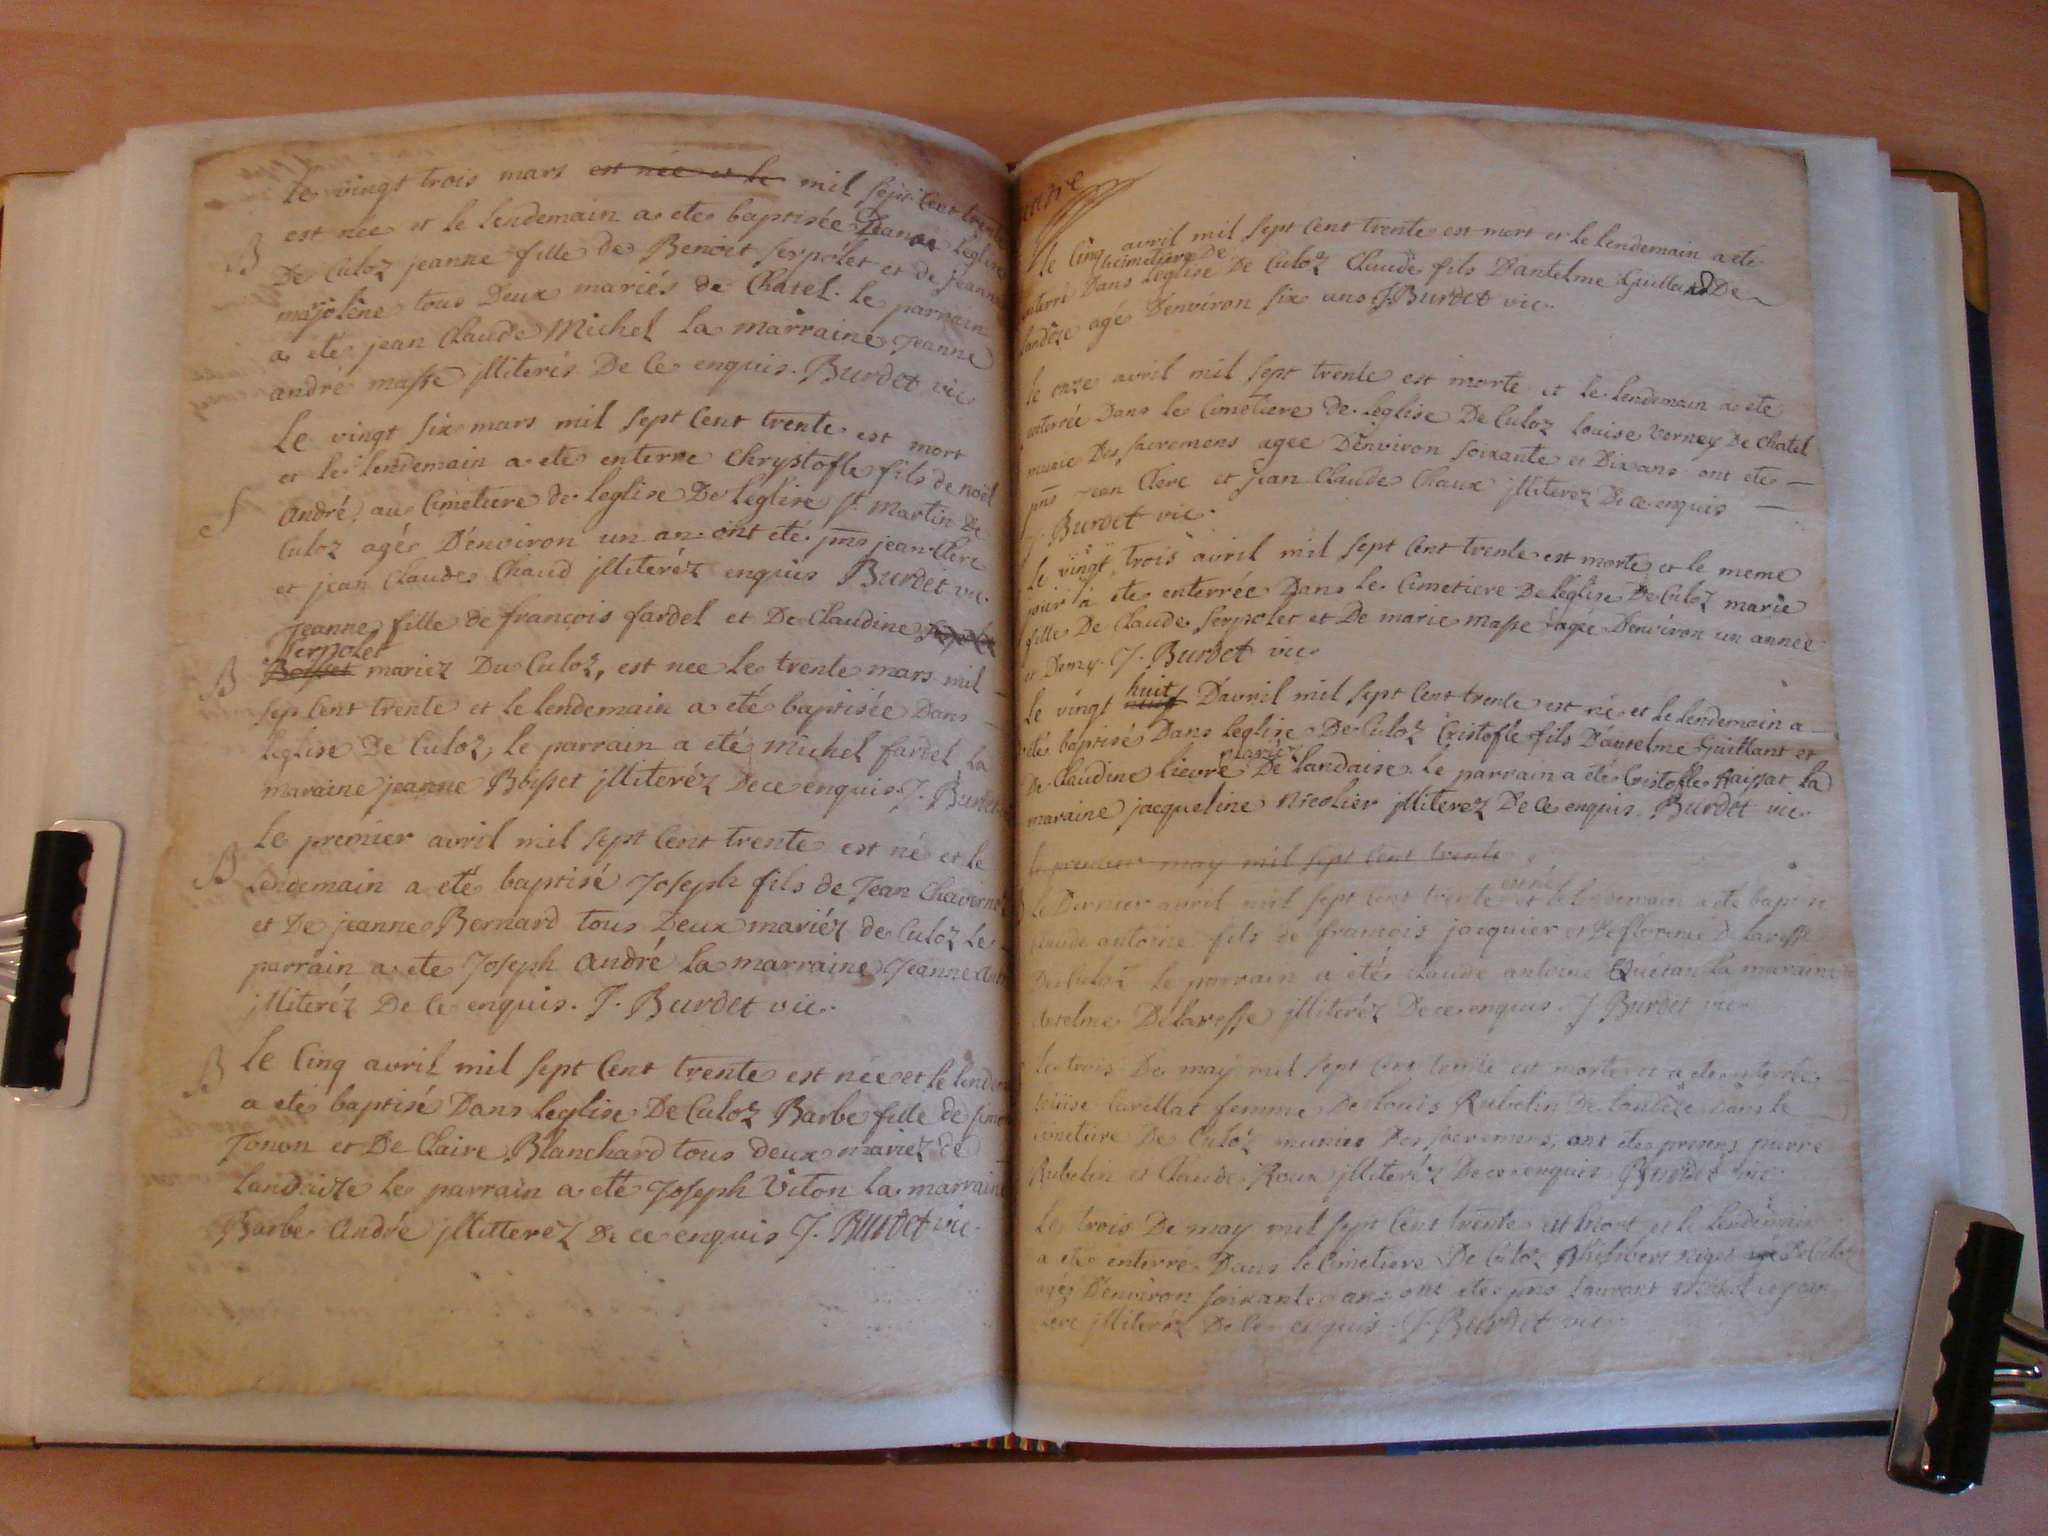 le vingt trois mars est née et le mil sept cent trente
est née et le lendemain a eté baptisée Dans leglise
B
De Culoz jeanne fille de Benoit Serpolet et de jeanne
majolêne tous Deux mariés de Chatel. le parrain
a eté jean Claude Michel la marraine Jeanne
andré masse jlliterés De Ce enquis. Burdet vic
Le vingt six mars mil sept Cent trente est mort
et le lendemain a eté enterre Chrystofle fils de noël
S
André, au Cimetiere de leglise De leglise st Martin De
Culoz agé D'environ un an. ont eté pns jean Clerc
et jean Claude Chaud jlliteréz enquis Burdet vic.
Jeanne fille de françois fardel et De Claudine
Serpolet
B
Bosset mariez Du Culoz, est nee le trente mars mil
sep Cent trente et le lendemain a eté baptisée Dans
leglise De Culoz, le parrain a eté michel fardel la
maraine jeanne Bosset jlliteréz De ce enquis. J. Burdet
Le premier avril mil sept Cent trente est né et le
B
lendemain a eté baptisé Joseph fils de Jean
et De jeanne Bernard tous Deux mariéz de Culoz Le
parrain a ete Joseph André la marraine Jeanne
jlliteréz De Ce enquis. J. Burdet vic.
B
le Cinq avril mil sept Cent trente est née et le
a eté baptisé Dans leglise De Culoz Barbe fille de
Tonon et De Claire Blanchard tous deux mariez de
landaize le parrain a eté Joseph Viton la marraine
Barbe André jllitterez De ce enquis J. Burdet vic.
le Cinq avril mil sept Cent trente est mort et le lendemain a eté
himetiere De
enterré Dans leglise De Culoz Claude fils D'antelme Guilland De
landêze agé D'environ six ans J. Burdet vic.
le onze avril mil sept trente est morte et le lendemain a eté
enterrée Dans le Cimetiere de leglise De Culoz louise Verney De Chatel
munie Des sacremens agee D'environ soixante et Dix ans ont ete
pns Jean Clerc et jean Claude Chaux jlliterez De ce enquis
J. Burdet vic.
le vingt trois avril mil sept Cent trente est morte et le meme
jour a ete enterrée Dans le Cimetiere De leglise De Culoz marie
fille De Claude Serpolet et De marie masse agée D'environ un année
et Demy. J. Burdet vic.
huit
le vingt D'avril mil sept Cent trente est né et le lendemain a
eté baptisé Dans leglise De Culoz Cristofle fils D'antelme Guillant et
mariéz
De Claudine lievre De landaise. le parrain a eté Cristofle la
maraine jacqueline Nicolier jlliterez De Ce enquis. Burdet vic.
le premier may mil sept Cent trente
est né
le Dernier avril mil sept cent trente et le lendemain a été baptisé
Claude antoine fils de francois jacquier et De florence
De Culoz le parrain a eté claude antoine la maraine
antelme Delavesse jlliteréz De ce enquis. J Burdet vic.
le trois De may mil sept Cent trente est morte et a ete enterrée
femme De louis Rubelin De landêze Dans le
Cimetiere De Culoz munie Des sacremens, ont ete presens pierre
Rubelin et Claude Roux jlliteréz De ce enquis Burdet vic
le trois De may mil sept Cent trente est mort et le lendemain
a ete enterré Dans le Cimetiere De Culoz Philibert De Culoz
agéz D'environ soixante ans ont ete pns laurent
jlliteréz De Ce enquis. J. Burdet vic.